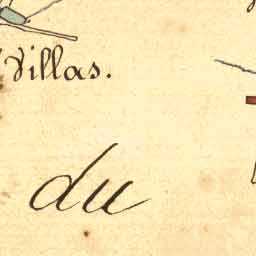 Villas.
du